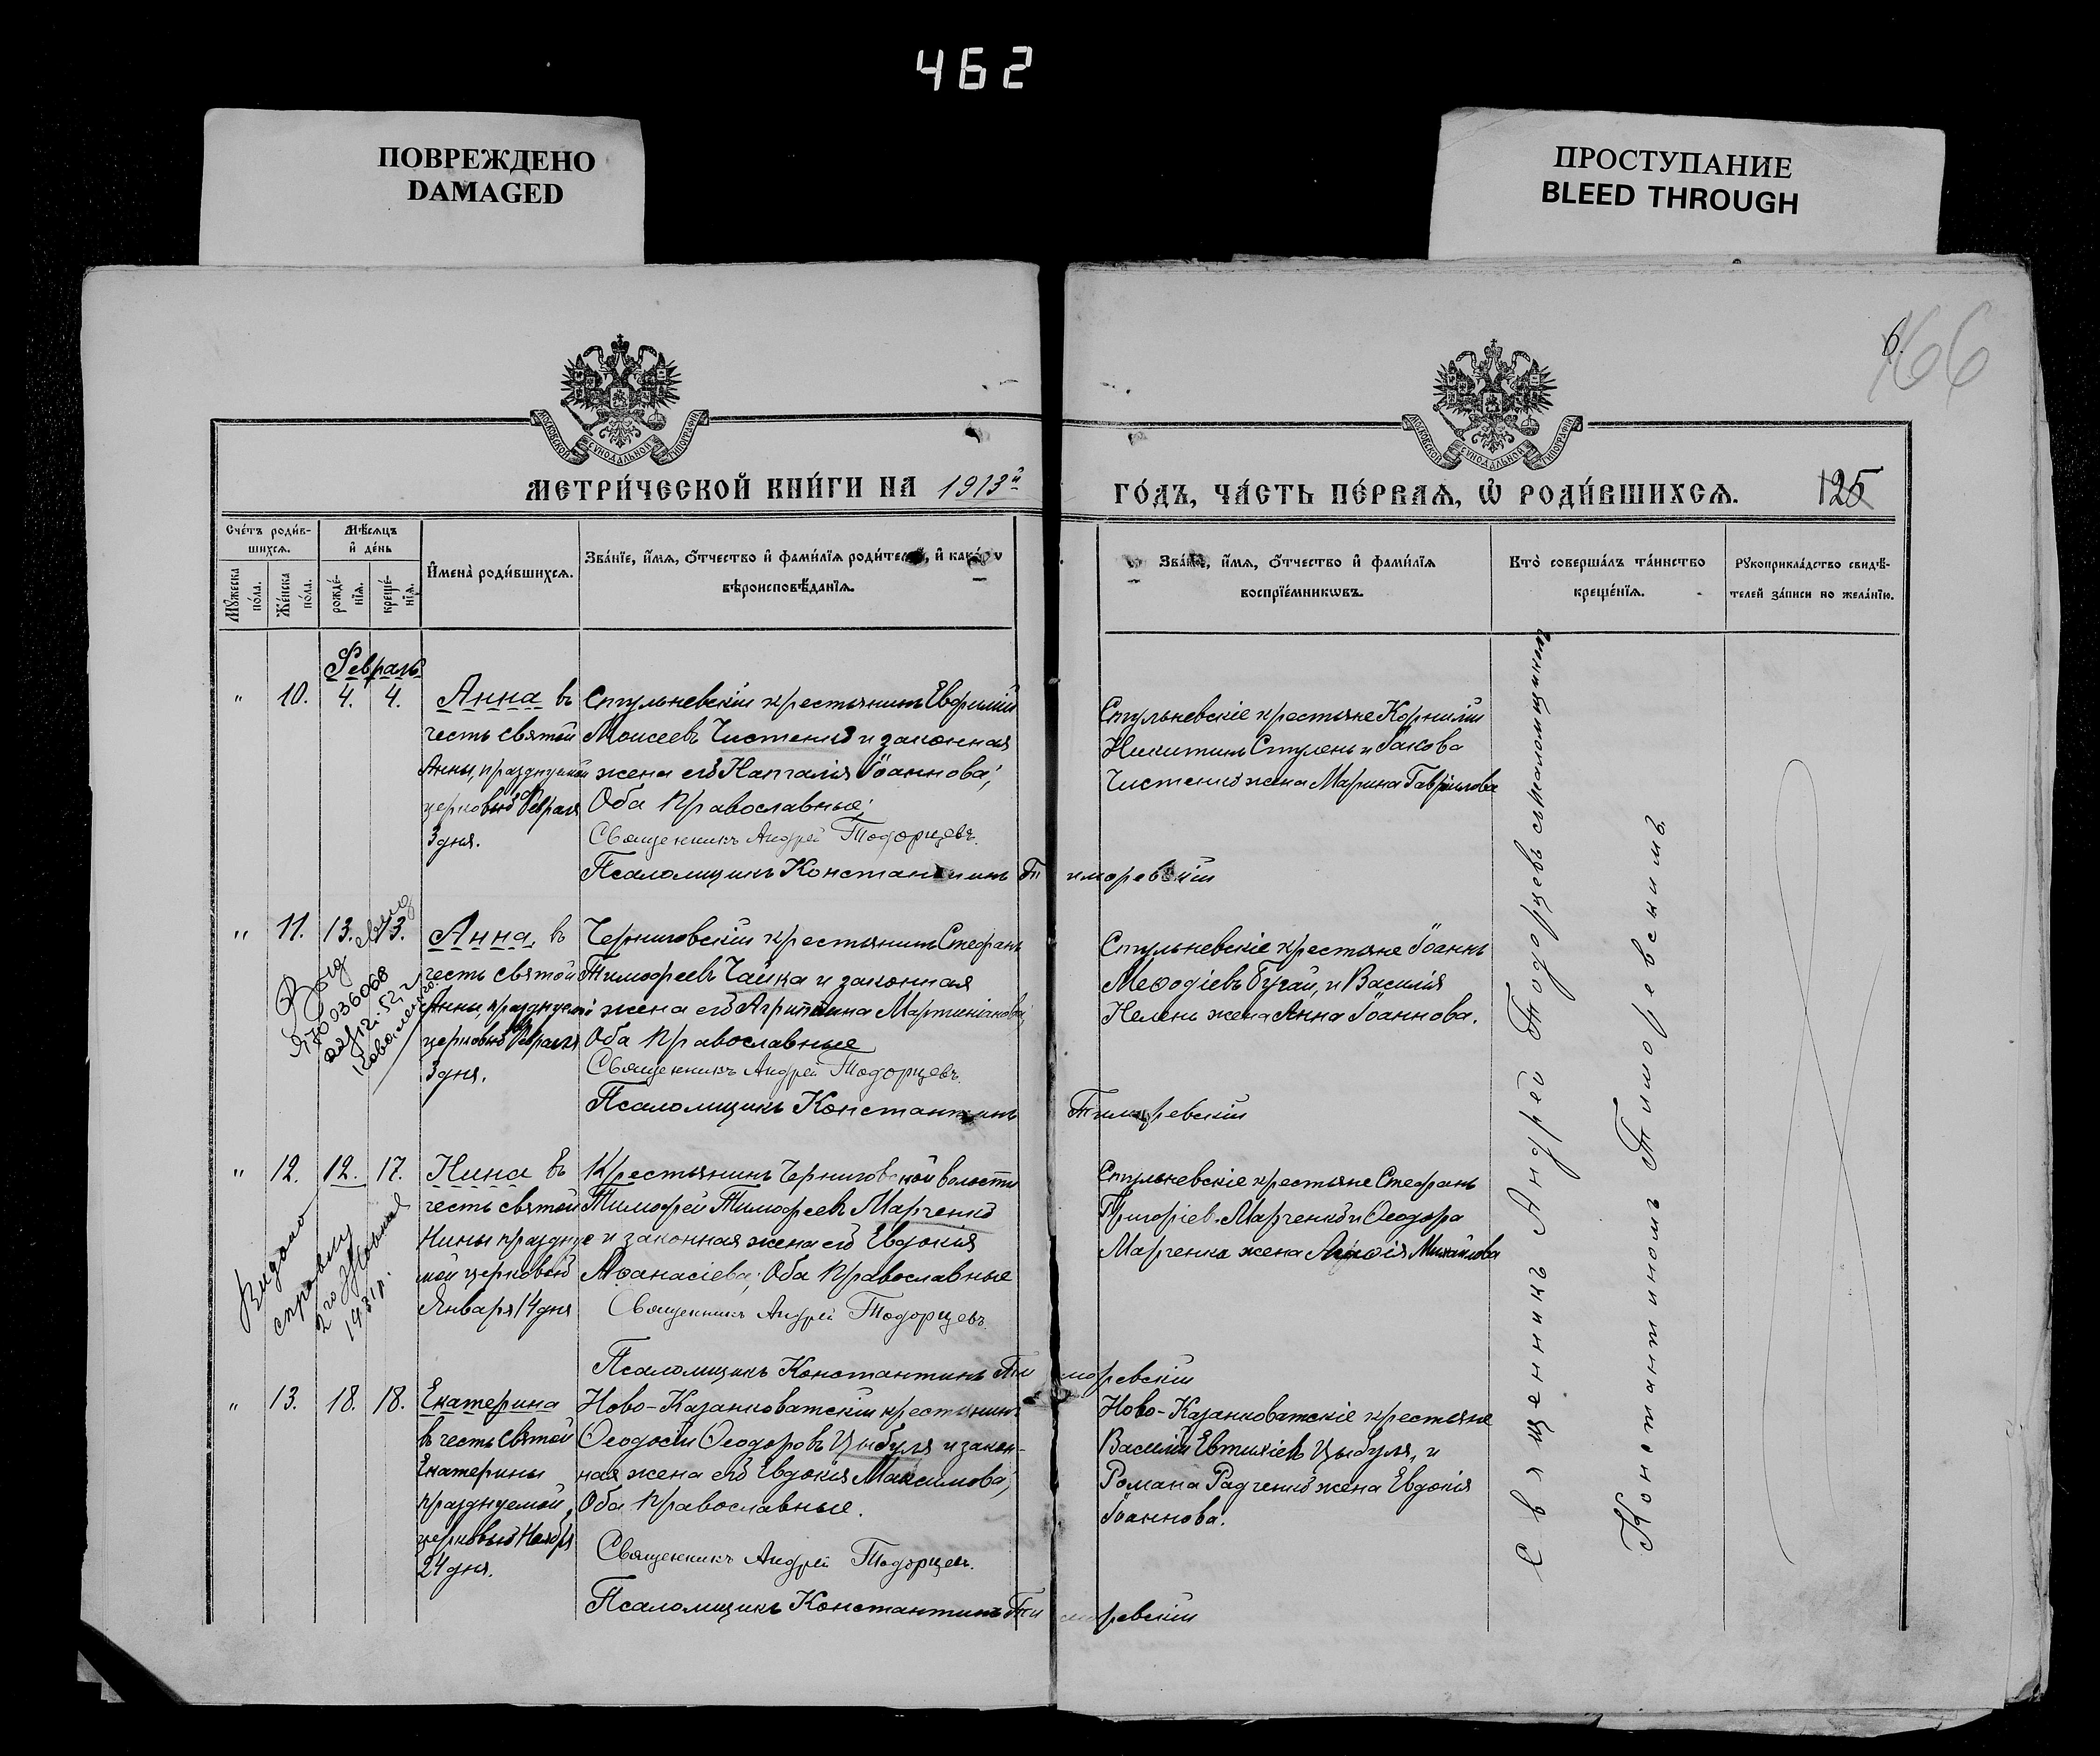 462
ПОВРЕЖДЕНО
DAMAGED
ПРОСТУПАНИЕ
BLEED THROUGH
6.
66
МОСКОВСКОЙ СѴНОДАЛЬНОЙ ТИПОГРАФІИ
МОСКОВСКОЙ СѴНОДАЛЬНОЙ ТИПОГРАФІИ
МЕТРИ́ЧЕСКОЙ КНИ́ГИ НА 1913й
ГО́ДЪ, ЧА́СТЬ ПЕ́РВАѦ, Ѡ҆ РОДИ́ВШИХСѦ.
125
Сче́тъ роди́в-
шихсѧ.
Мꙋжеска по́ла.
Же́нска по́ла.
Мѣ́сѧцъ
и҆ де́нь
рожде́-
нїѧ.
креще́-
нїѧ.
И҆мена̀ роди́вшихсѧ.
Зва́нїе, и҆́мѧ, ѻ҆́тчество и҆ фами́лїѧ роди́телей, и҆
вѣроисповѣ́данїѧ.
Зва́нїе, и҆́мѧ, ѻ҆́тчество и҆ фами́лїѧ
воспрїе́мникѡвъ.
Кто̀ соверша́лъ та́инство
креще́нїѧ.
Рꙋкоприкла́дство свидѣ́-
телей за́писи по жела́нїю.
Февраль
" 10. 4. 4.
Анна въ
честь святой
Анны, празднуемой
церковью Февраля
3 дня.
Стульневскій крестьянинъ Евфимій
Моисеевъ Чистенко и законная
жена его Наталія Іоаннова;
Оба Православные;
Священникъ Андрей Тодорцевъ.
Псаломщикъ Константинъ Тиморевскій
Стульневскіе крестьяне Корнилій
Никитинъ Ступень и Іакова
Чистенко жена Марина Гавріилова
" 11. 13. 13.
Анна, въ
честь святой
Анны, празднуемой
церковью Февраля
3 дня.
Черниговскій крестьянинъ Стефанъ
Тимофеевъ Чайка и законная
жена его Агриппина Мартиніанова,
Оба Православные
Священникъ Андрей Тодорцевъ.
Псаломщикъ Константинъ Тиморевскій
Стульневскіе крестьяне Іоаннъ
Меѳодіевъ Бугай, и Василія
Келень жена Анна Іоаннова.
" 12. 12. 17.
Нина въ
честь святой
Нины празднуе
мой церковью
Января 14 дня
Крестьянинъ Черниговской волости
Тимофей Тимофеевъ Марченко
и законная жена его Евдокія
Аѳанасіева; Оба Православные
Священникъ Андрей Тодорцевъ.
Псаломщикъ Константинъ Тиморевскій
Стульневскіе крестьяне Стефанъ
Григоріев. Марченко и Ѳеодора
Марченка жена Михайлова
Видано
справку
2го
1931р.
" 13. 18. 18.
Екатерина
въ честь святой
Екатерины
празднуемой
церковью Ноября
24 дня.
Ново-Казанковатскій крестьянинъ
Ѳеодосій Ѳеодоровъ Цыбуля и закон-
ная жена его Евдокія Максимова;
Оба Православные.
Священникъ Андрей Тодорцевъ.
Псаломщикъ Константинъ Тиморевскій
Ново-Казанковатскіе крестьяне
Василій Евтихіевъ Цыбуля, и
Романа Радченко жена Евдокія
Іоаннова.
Священникъ Андрей Тодорцевъ съ псаломщикомъ
Константиномъ Тиморевскимъ.